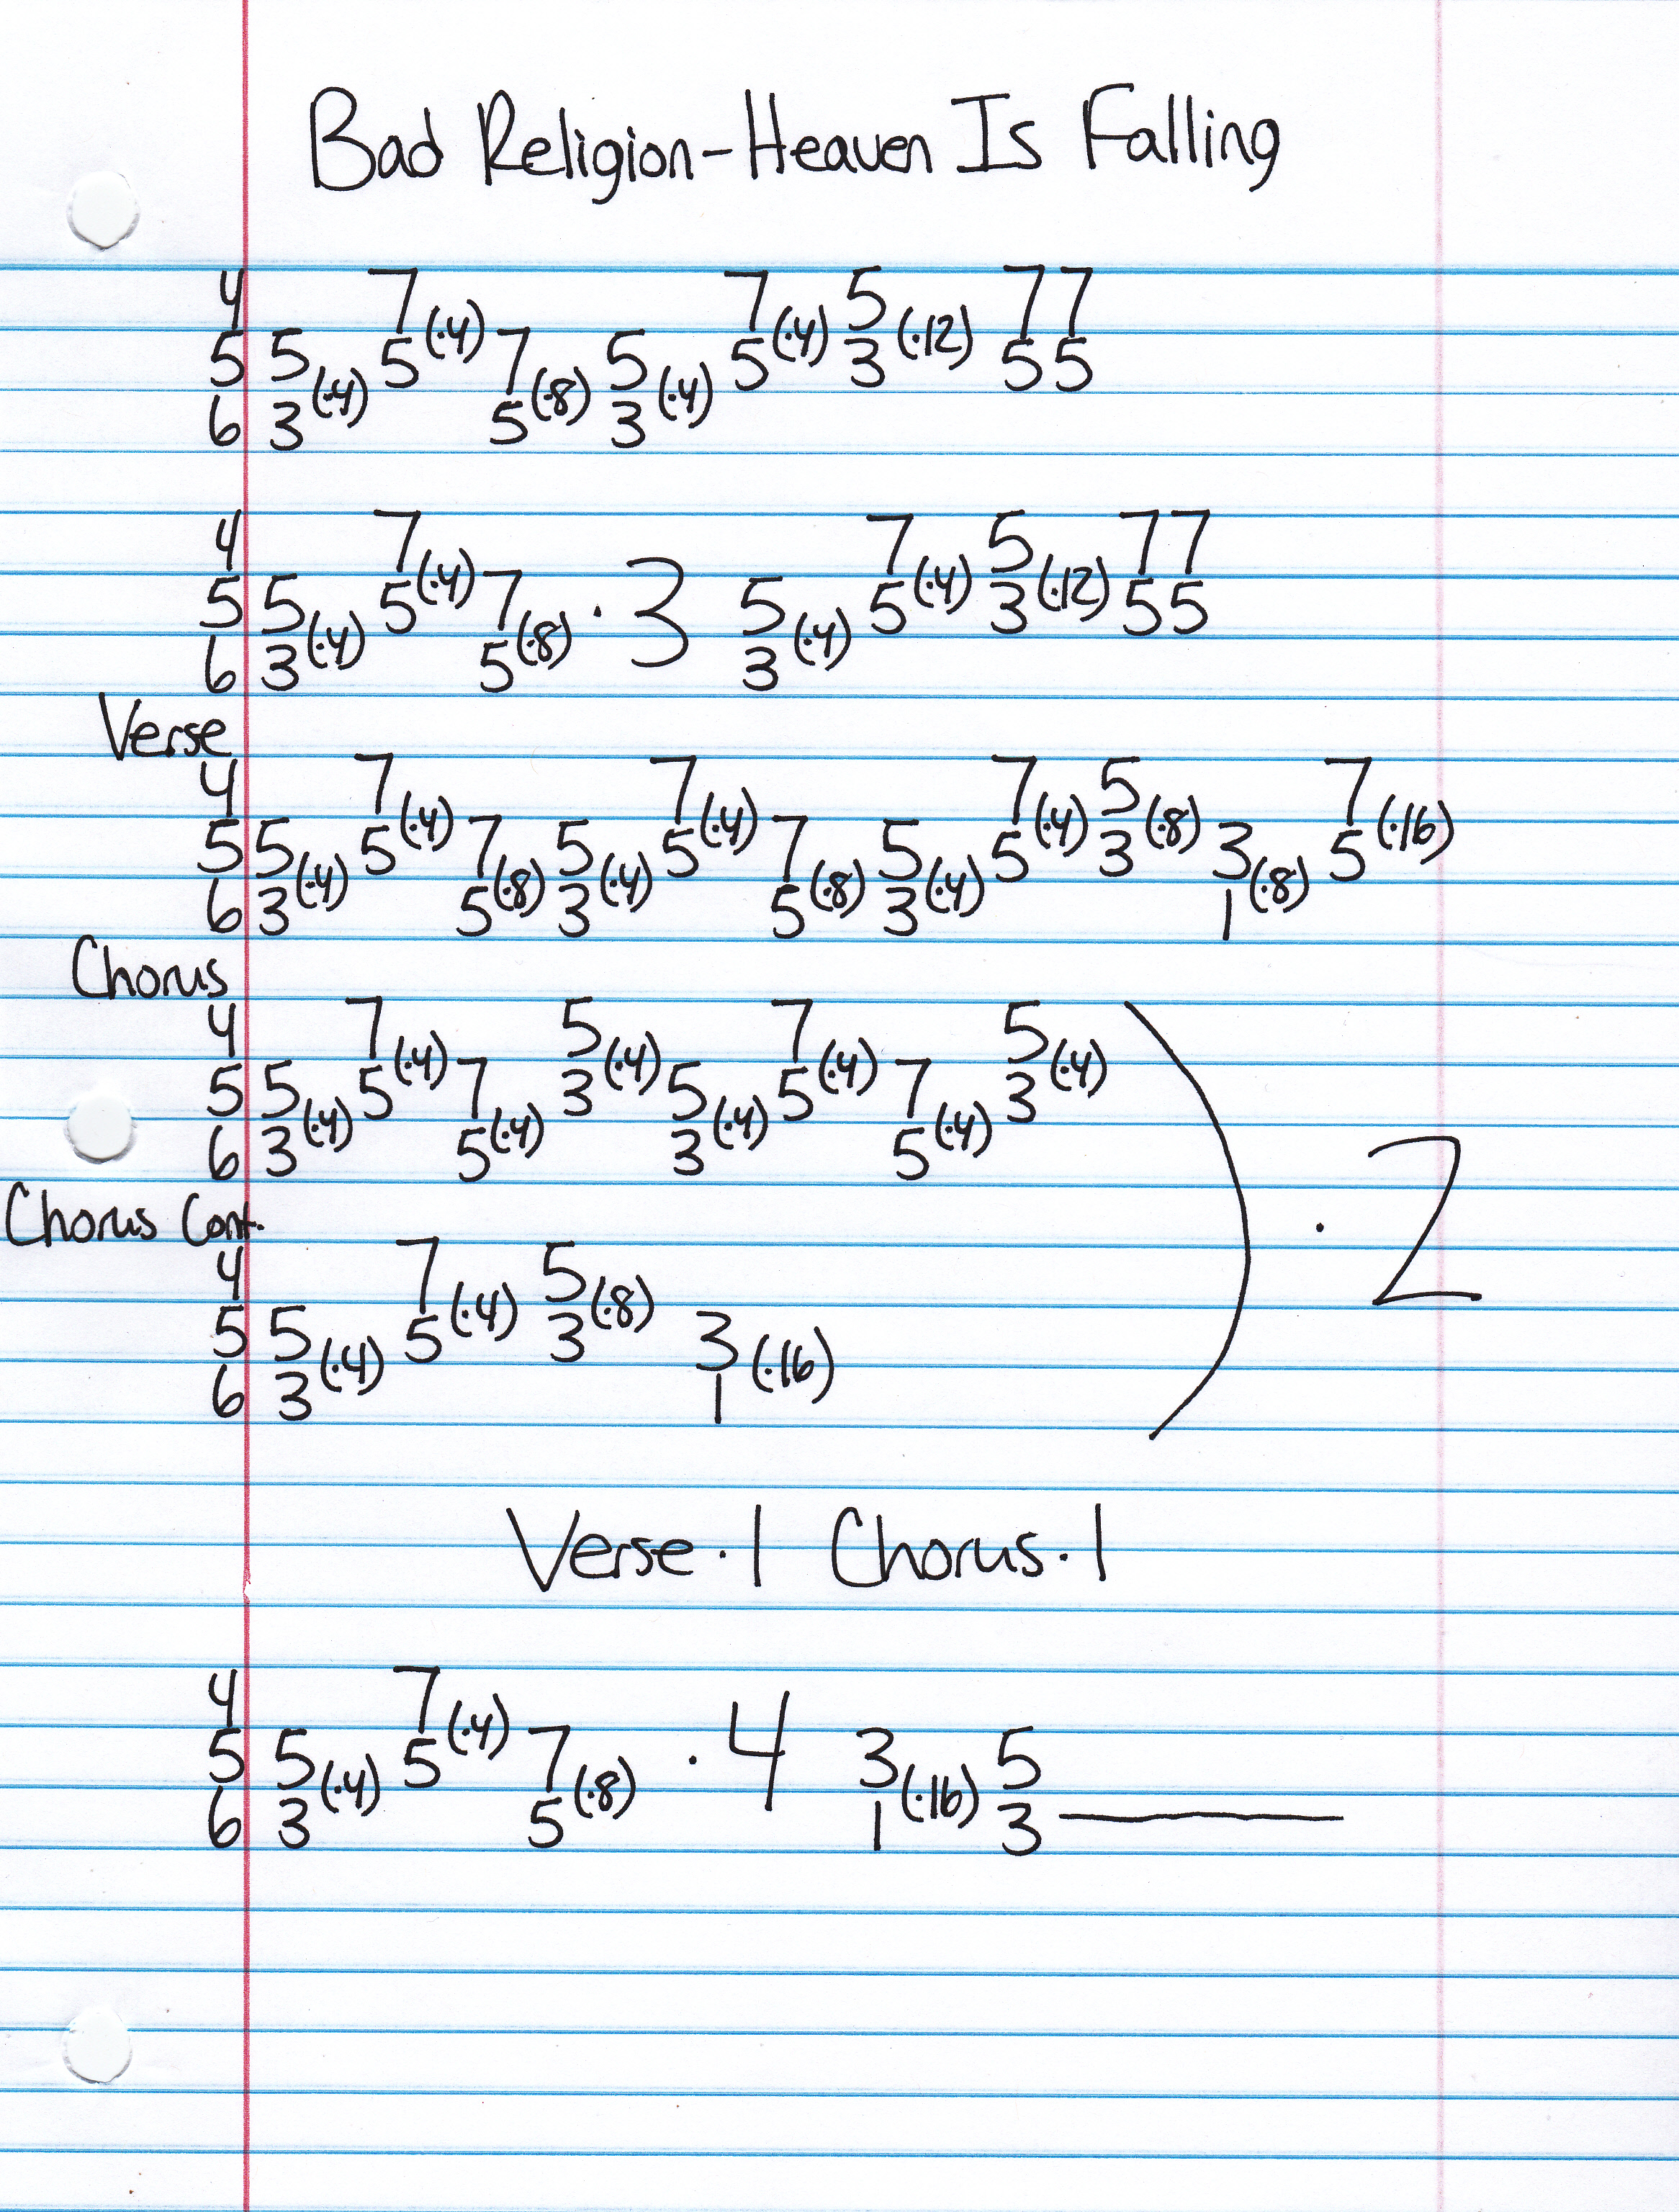 Bad Religion-Heaven Is Falling
4 7(·4) 7(·4) 5(·12) 7 7
5 5(·4) 5 7(·8) 5(·4) 5 3 5 5
6 3 5 3
4 7(·4) 7(·4) 5(·12) 7 7
5 5(·4) 5 7(·8) ·3 5(·4) 5 3 5 5
6 3 5 3
Verse
4 7(·4) 7(·4) 7(·4) 5(·8) 7(·16)
5 5(·4) 5 7(·8) 5(·4) 5 7(·8) 5(·4) 5 3 3(·8) 5
6 3 5 3 5 3 1
Chorus
4 7(·4) 5(·4) 7(·4) 5(·4)
5 5(·4) 5 7(·4) 3 5(·4) 5 7(·4) 3
6 3 5 3 5
) ·2
Chorus Cont.
4 7(·4) 5(·8)
5 5(·4) 5 3 3(·16)
6 3 1
Verse·1 Chorus·1
4 7(·4)
5 5(·4) 5 7(·8) ·4 3(·16) 5
6 3 5 1 3